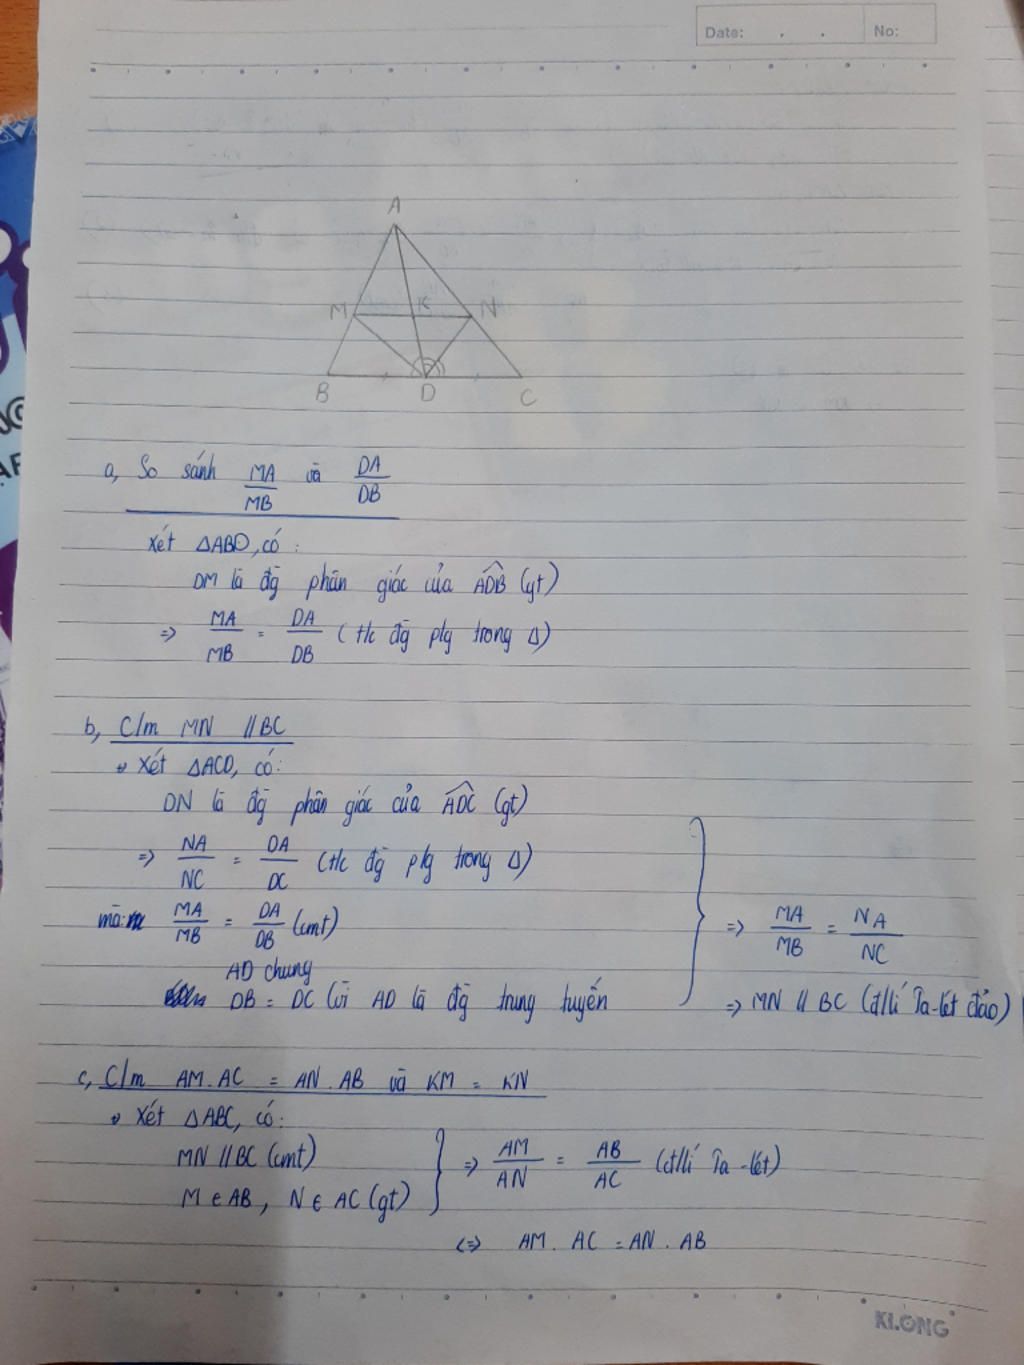 Date: . . No:
A
M K N
B D C
a, So sánh MA/MB và DA/DB
Xét ΔABD, có:
DM là đg phân giác của ADB (gt)
=> MA/MB = DA/DB (t/c đg p/g trong Δ)
b, C/m MN // BC
Xét ΔACD, có:
DN là đg phân giác của ADC (gt)
=> NA/NC = DA/DC (t/c đg p/g trong Δ)
mà: MA/MB = DA/DB (cmt)
AD chung
DB = DC (vì AD là đg trung tuyến
=> MA/MB = NA/NC
=> MN // BC (đ/lí Ta-lét đảo)
c, C/m AM . AC = AN . AB và KM = KN
Xét ΔABC, có:
MN // BC (cmt)
M ∈ AB, N ∈ AC (gt)
=> AM/AN = AB/AC (đ/lí Ta-lét)
<=> AM . AC = AN . AB
KLONG